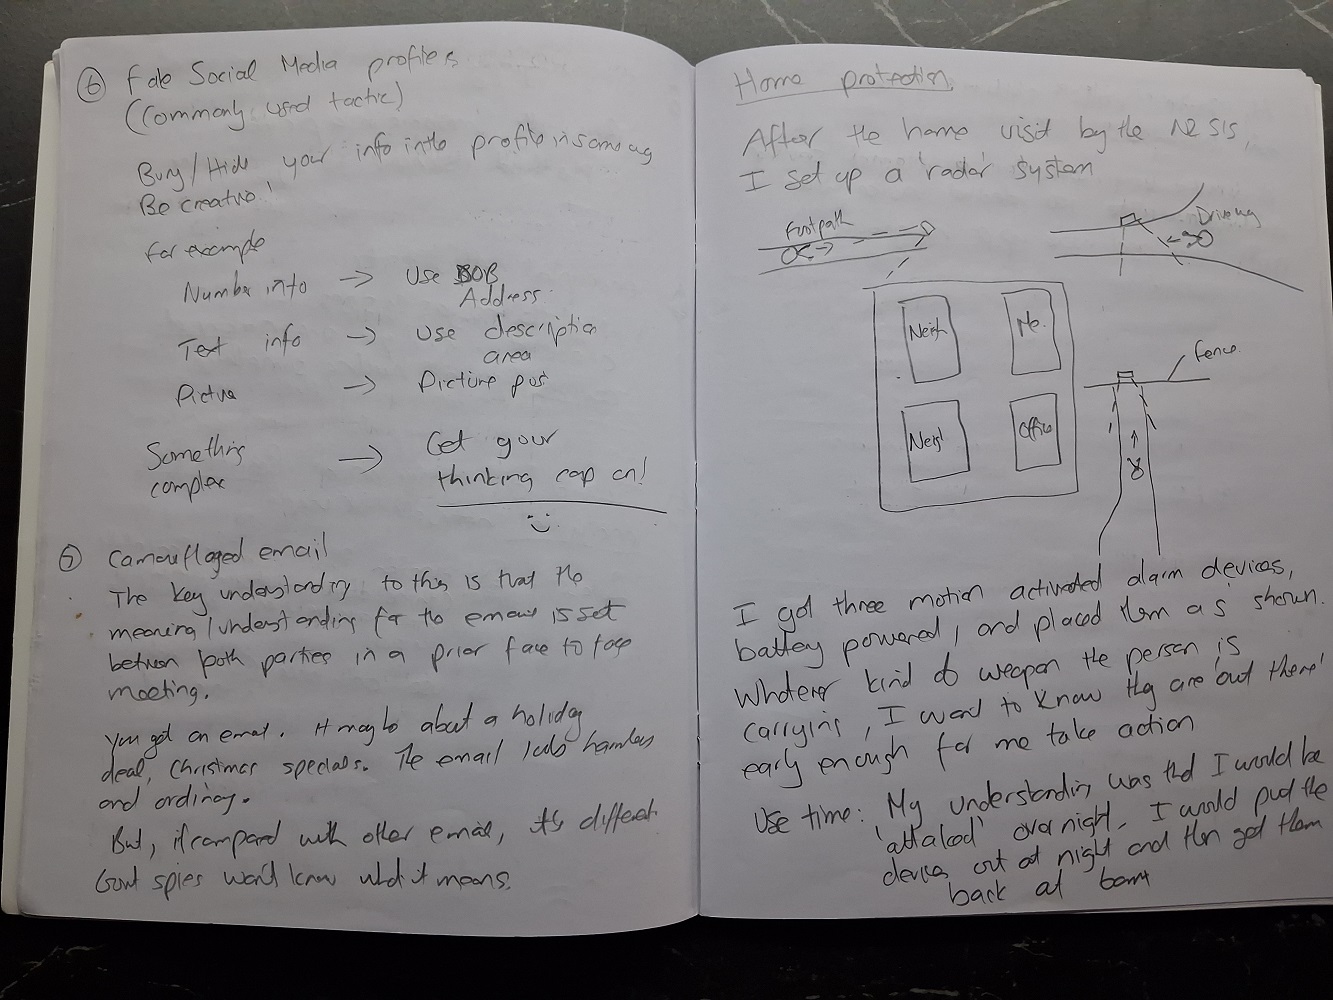 ⑥ Fake Social Media profiles
(Commonly used tactic)
Bury/Hide your info into profile in some way
Be creative!
For example
Number info → Use DOB
Address
Text info → Use description
area
Picture → Picture post
Something → Get your
complex thinking cap on!
⑦ Camouflaged email
The key understanding to this is that the
meaning/understanding for the email is set
between both parties in a prior face to face
meeting.
You get an email. It may be about a holiday
deal, Christmas specials. The email looks harmless
and ordinary.
But, if compared with other email, it's different.
Govt spies won't know what it means.
Home protection
After the home visit by the NZSIS,
I set up a 'radar' system
Footpath
Driveway
Neigh
Me.
Fence
Neigh
Office
I got three motion activated alarm devices,
battery powered, and placed them as shown.
Whatever kind of weapon the person is
carrying, I want to know they are 'out there'
early enough for me take action
Use time: My understanding was that I would be
'attacked' overnight. I would put the
devices out at night and then get them
back at